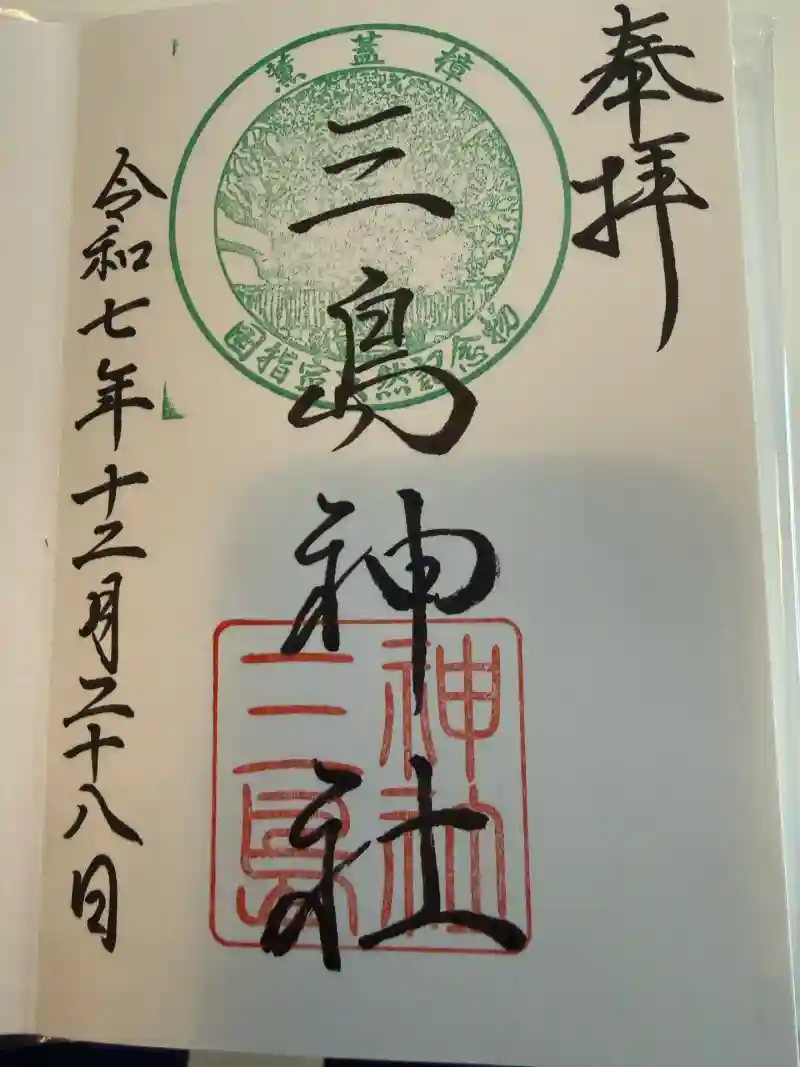 奉拝
薫蓋樟
三島神社
國指定天然記念物
三島
神社
令和七年十二月二十八日